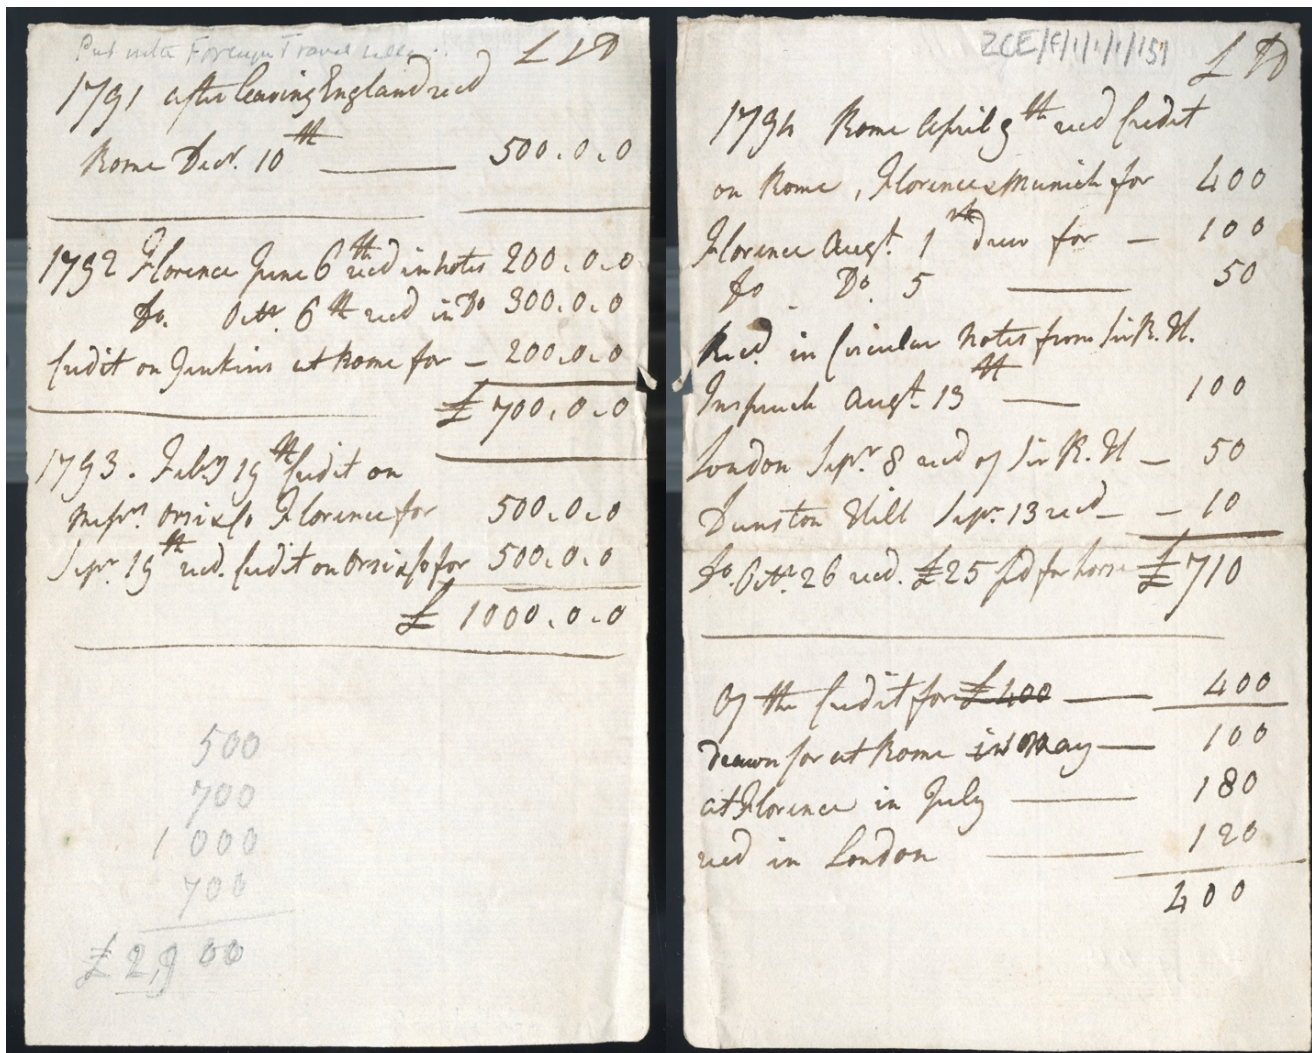 Put with Foreign Travel
£ s D
1791 after leaving England recd
Rome Decr. 10th — 500.0.0
1792 Florence June 6th recd in notes 200.0.0
Do. Octr. 6th recd in Do 300.0.0
Credit on Jenkins at Rome for – 200.0.0
£ 700.0.0
1793. Feby 19th Credit on
Messrs. Orsi & Co Florence for 500.0.0
Sepr. 19th recd. Credit on Orsi & Co for 500.0.0
£ 1000.0.0
500
700
1000
700
£2,900
ZCE/F/1/1/1/157
£ D
1794 Rome April 9th recd Credit
on Rome, Florence & Munich for 400
Florence Augt. 1st drew for — 100
Do Do. 5 — 50
Recd. in Circular Notes from Sir R. H.
Inspruck Augt. 13th — 100
London Sepr. 8 recd of Sir R. H – 50
Dunston Hill Sepr. 13 recd – – 10
Do. Octr. 26 recd. £25 pd for horse £710
Of the Credit for £400 — 400
drawn for at Rome in May — 100
at Florence in July — 180
recd in London — 120
400